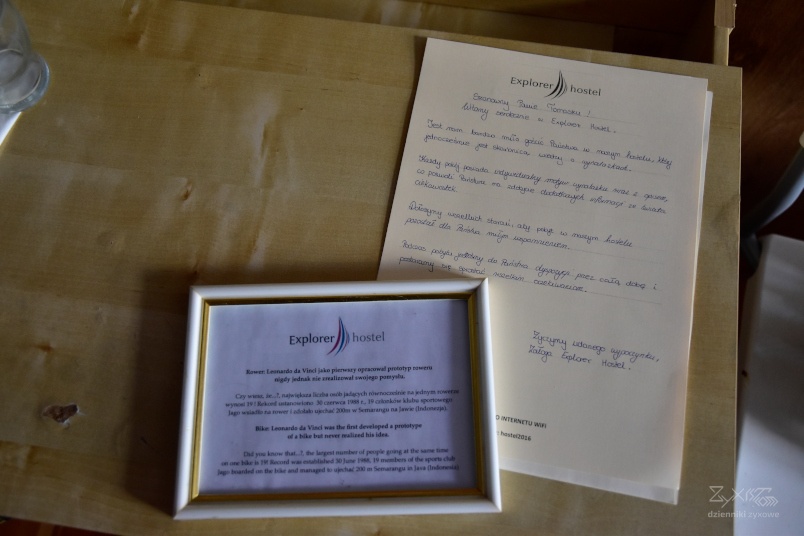 Explorer hostel
Szanowny Panie Tomaszu!
Witamy serdecznie w Explorer Hostel.
Jest nam bardzo miło gościć Państwa w naszym hostelu, który
jednocześnie jest skarbnicą wiedzy o wynalazkach.
Każdy pokój posiada indywidualny motyw wynalazku wraz z opisem,
co pozwoli Państwu na zdobycie dodatkowych informacji ze świata
ciekawostek.
Dołożymy wszelkich starań, aby pobyt w naszym hostelu
pozostał dla Państwa miłym wspomnieniem.
Podczas pobytu jesteśmy do Państwa dyspozycji przez całą dobę i
postaramy się sprostać wszelkim oczekiwaniom.
Życzymy udanego wypoczynku,
Załoga Explorer Hostel.
O INTERNETU WIFI
hostel2018
Explorer hostel
Rower: Leonardo da Vinci jako pierwszy opracował prototyp roweru
nigdy jednak nie zrealizował swojego pomysłu.
Czy wiesz, że...?, największa liczba osób jadących równocześnie na jednym rowerze
wynosi 19! Rekord ustanowiono 30 czerwca 1988 r., 19 członków klubu sportowego
Jago wsiadło na rower i zdołało ujechać 200m w Semarangu na Jawie (Indonezja).
Bike: Leonardo da Vinci was the first developed a prototype
of a bike but never realized his idea.
Did you know that...?, the largest number of people going at the same time
on one bike is 19! Record was established 30 June 1988, 19 members of the sports club
Jago boarded on the bike and managed to ujechać 200 m Semarangu in Java (Indonesia)
dzienniki zykowe